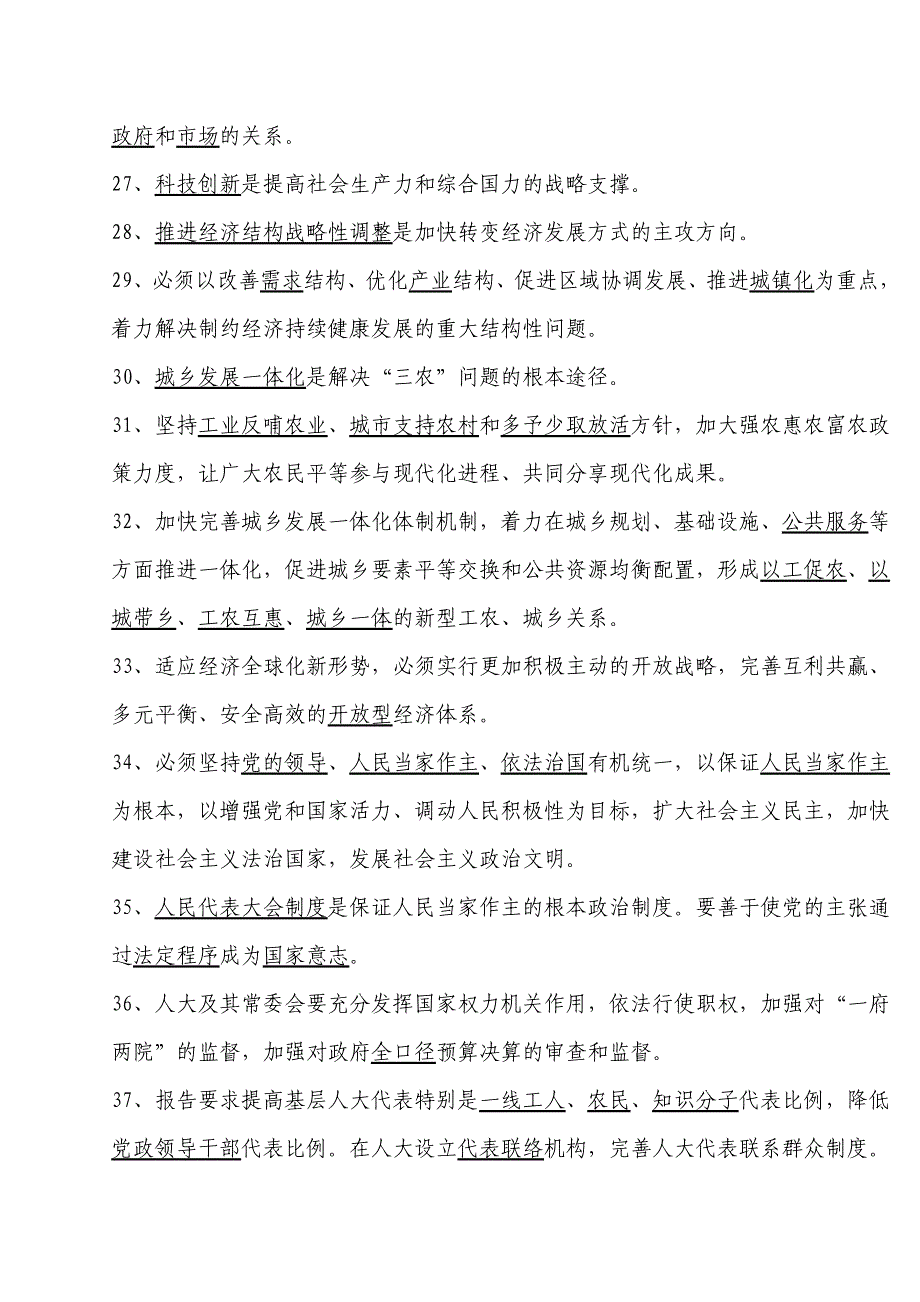 政府和市场的关系。
27、科技创新是提高社会生产力和综合国力的战略支撑。
28、推进经济结构战略性调整是加快转变经济发展方式的主攻方向。
29、必须以改善需求结构、优化产业结构、促进区域协调发展、推进城镇化为重点，
着力解决制约经济持续健康发展的重大结构性问题。
30、城乡发展一体化是解决“三农”问题的根本途径。
31、坚持工业反哺农业、城市支持农村和多予少取放活方针，加大强农惠农富农政
策力度，让广大农民平等参与现代化进程、共同分享现代化成果。
32、加快完善城乡发展一体化体制机制，着力在城乡规划、基础设施、公共服务等
方面推进一体化，促进城乡要素平等交换和公共资源均衡配置，形成以工促农、以
城带乡、工农互惠、城乡一体的新型工农、城乡关系。
33、适应经济全球化新形势，必须实行更加积极主动的开放战略，完善互利共赢、
多元平衡、安全高效的开放型经济体系。
34、必须坚持党的领导、人民当家作主、依法治国有机统一，以保证人民当家作主
为根本，以增强党和国家活力、调动人民积极性为目标，扩大社会主义民主，加快
建设社会主义法治国家，发展社会主义政治文明。
35、人民代表大会制度是保证人民当家作主的根本政治制度。要善于使党的主张通
过法定程序成为国家意志。
36、人大及其常委会要充分发挥国家权力机关作用，依法行使职权，加强对“一府
两院”的监督，加强对政府全口径预算决算的审查和监督。
37、报告要求提高基层人大代表特别是一线工人、农民、知识分子代表比例，降低
党政领导干部代表比例。在人大设立代表联络机构，完善人大代表联系群众制度。